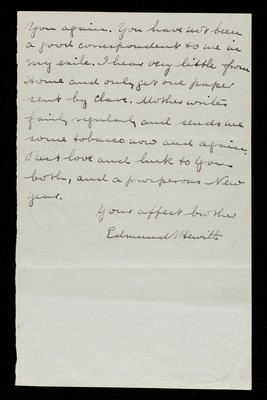 You again. You have not been
a good correspondent to me in
my exile. I hear very little from
Home and only get one paper
sent by Clare. Mother writes
fairly regularly and sends me
some tobacco now and again.
Best love and luck to You
both, and a prosperous New
Year.
Your affect brother
Edmund Hewitt